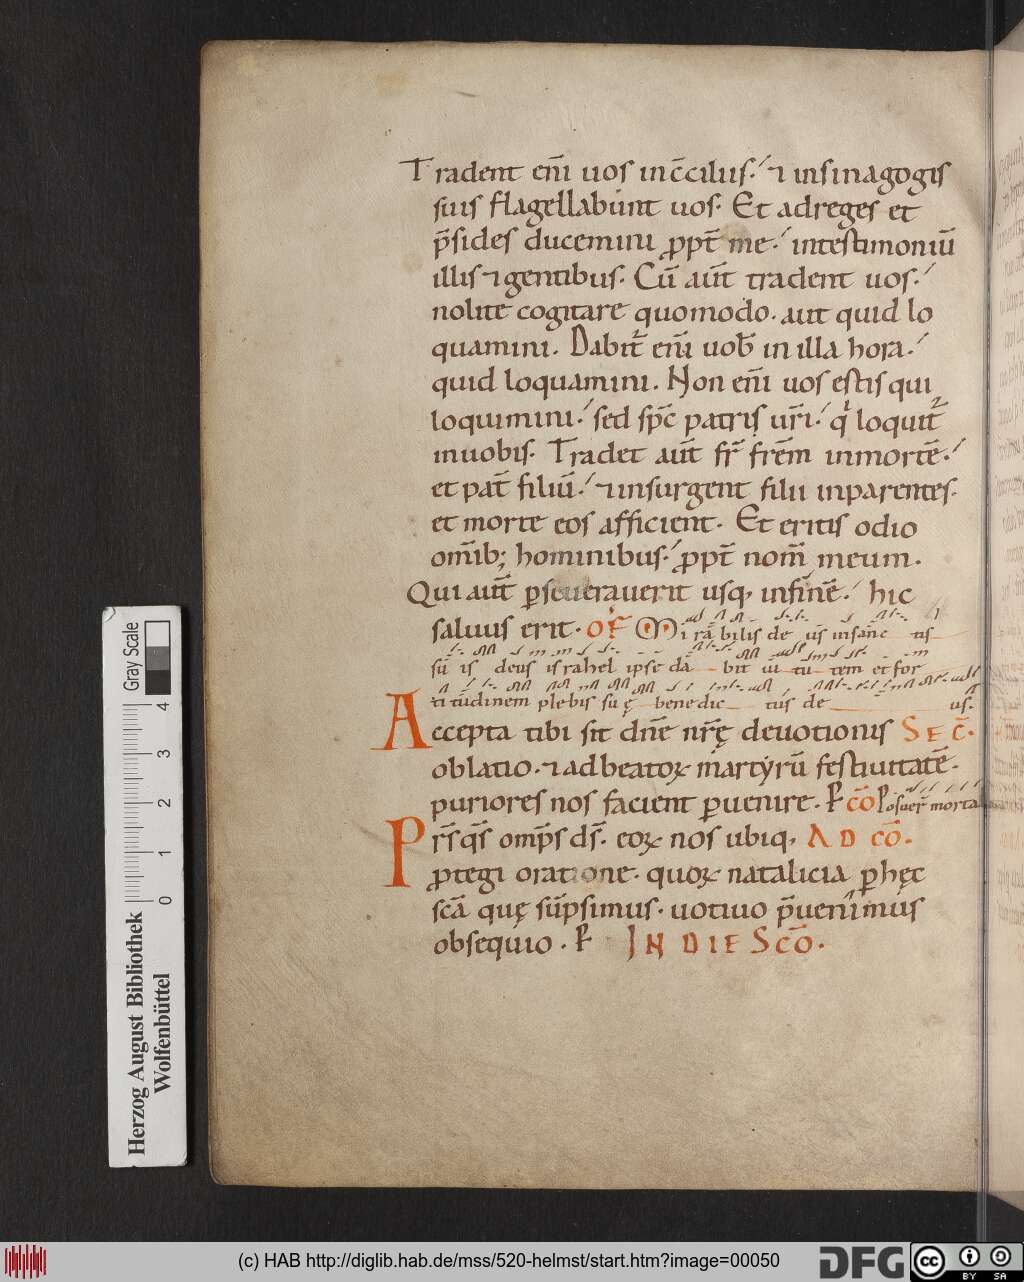 Tradent eni̅ uos in c̅ciliis. ⁊ in sinagogis
suis flagellabunt uos. Et ad reges et
p̅sides ducemini ꝓpt̅ me. in testimoniu̅
illis ⁊ gentibus. Cu̅ aut̅ tradent uos.
nolite cogitare quomodo. aut quid lo
quamini. Dabit̅ eni̅ uob̅ in illa hora.
quid loquamini. Non eni̅ uos estis qui
loquimini. sed sp̅c patris ur̅i. q' loquit̅
in uobis. Tradet aut̅ fr̅ fre̅m in morte̅.
et pat̅ filiu̅. ⁊ insurgent filii in parentes.
et morte eos afficient. Et eritis odio
om̅ib; hominibus. ꝓpt̅ nom̅ meum.
Qui aut̅ ꝑseuerauerit usq, in fine̅. hic
saluus erit. OF Mira̅bilis de us̅ in sanc tis
su̅ is deus israhel ipse da̅ bit ui tu tem et for
titudinem plebis suę benedic tus de us.
Accepta tibi sit dn̅e nr̅ę deuotionis SEC̅.
oblatio. ⁊ ad beatoꝝ martyru̅ festiuitate̅.
puriores nos facient ꝑuenire. P̱ co̅ Posuer̅ morta
Pr̅s qs̅ omp̅s ds̅. eoꝝ nos ubiq, AD co̅.
ꝓtegi oratione. quoꝝ natalicia ꝑ hęc
sc̅a quę su̅psimus. uotiuo p̅uenimus
obsequio. P̱ IN DIE Sc̅o.
Gray Scale
0 1 2 3 4
Herzog August Bibliothek
Wolfenbüttel
(c) HAB http://diglib.hab.de/mss/520-helmst/start.htm?image=00050
DFG
cc
BY SA